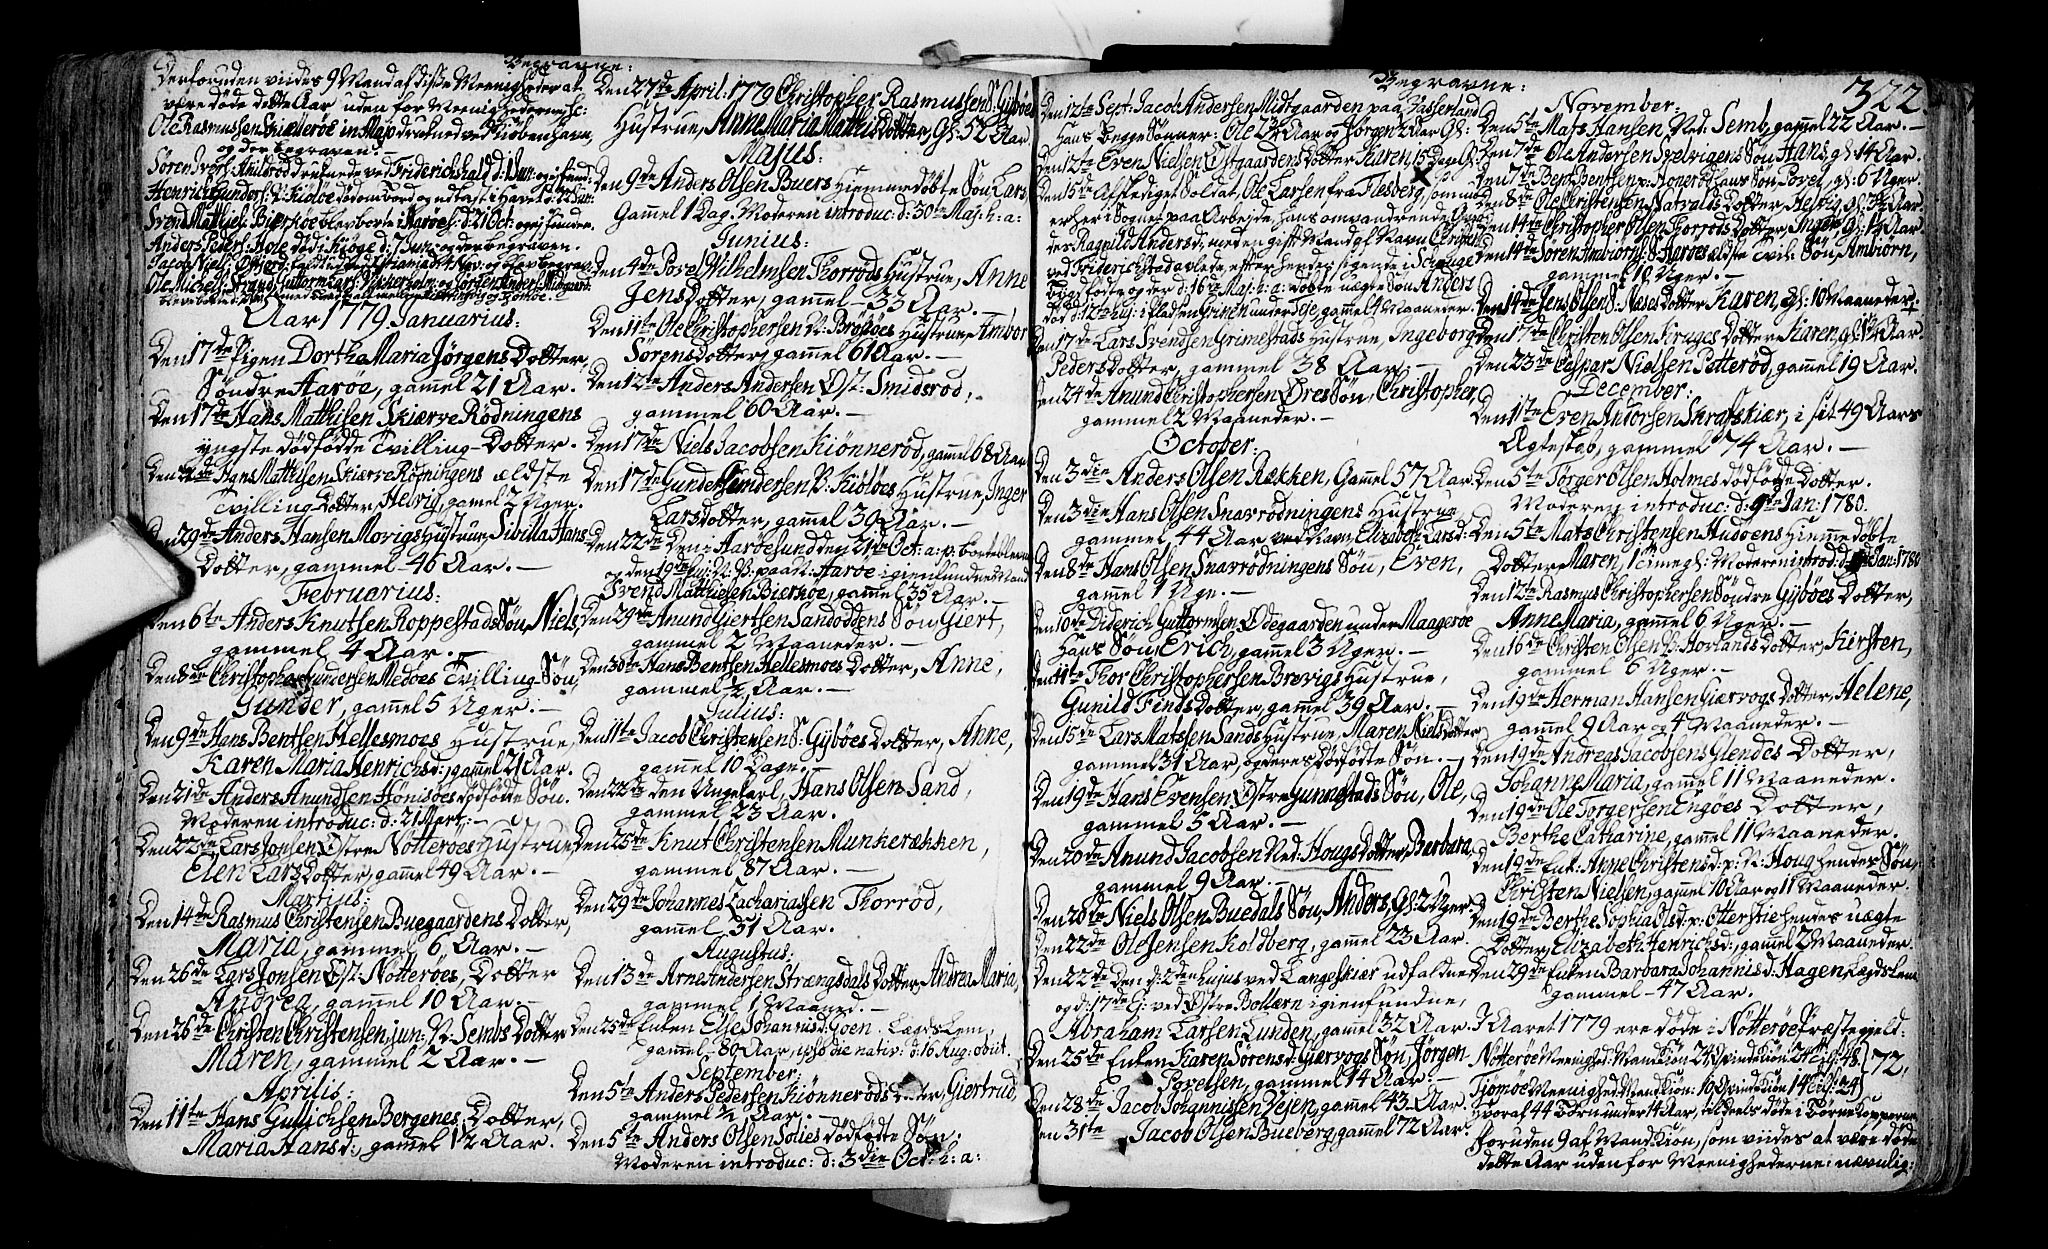 Begravne:
Derforuden viides 9 Mand af disse Meenigheder at
være døde dette Aar uden for Meenighederne sc:
Ole Rasmussen Skiellerøe in Majo drukned ved Kiøbenhavn,
og der begraven. –
Anders Peders: Hole død i Kiøge d: 7 Jun: og der begraven.
Aar 1779. Januarius:
Den 17de Pigen Dortha Maria Jørgens Dotter,
Søndre Aarøe, gamel 21 Aar.
Den 17de Hans Mathisen Skierve Rødningens
yngste dødfødde Tvilling-Dotter. –
Hans Mathisen Skierve Rødningens ældste
Tvilling-Dotter, Helvig, gamel 2 Uger.
Den 29de Anders Hansen Morigs Hustrue, Sibilla Hans
Dotter, gammel – 46 Aar. –
Februarius:
Den 6te Anders Knutsen Roppestads Søn, Niels,
gammel 4 Aar. –
Den 8de Christopher Gundersen Medøes Tvilling-Søn,
Gunder, gamel 5 Uger. –
Den 9de Hans Bentsen Hellesmoes Hustrue,
Karen Maria Henrichsd:, gamel 21 Aar.
Den 21de Anders Anundsen Hønisøes dødfødte Søn.
Moderen introduc: d: 21 Mart: –
Den 22de Lars Jonsen Østre Nøtterøes Hustrue,
Elen Lars Dotter, gamel 49 Aar. –
Martius:
Den 14de Rasmus Christensen Buegaardens Dotter,
Maria, gammel 6 Aar. –
Den 26de Lars Jonsen Øst: Nøtterøes Dotter
Andrea, gamel 10 Aar. –
Den 26de Christen Christensen, jun: N: Sembs Dotter
Maren, gammel 2 Aar. –
Aprilis:
Den 11te Hans Gullichsen Bergenes Dotter,
Maria Hansd:, gamel 1½ Aar.
Den 27de April: 1779 Christopher Rasmussen S: Gipøes
Hustrue, Anne Maria Mathis Dotter, gl: 52 Aar.
Majus:
Den 9de Anders Olsen Buers hiemmedøbte Søn, Lars,
Gammel 1 Dag. Moderen introduc: d: 30te Maj: h: a:
Junius:
Den 4de Povel Wilhelmsen Thorrøds Hustrue, Anne
Jens Dotter, gammel – 33 Aar. –
Den 11te Ole Christophersen N: Brøtsøes Hustrue, Ambor
Sørens Dotter, gammel 61 Aar. –
Den 12te Anders Andersen Øst: Smidsrød,
gammel 60 Aar. –
Den 17de Niels Jacobsen Kiønnerød, gamel 68 Aar
Den 17de Gunder Gundersen N: Kiøløes Hustrue, Inger
Lars Dotter, gammel 39 Aar. –
Svend Mathiesen Bierkøe, gammel 35 Aar. –
Den 29de Anund Giertsen Sandoddens Søn Giert,
gammel 2 Maaneder. –
Den 30te Hans Bentsen Hellesmoes Dotter, Anne,
gammel ½ Aar. –
Julius:
Den 11te Jacob Christensen S: Gipøes Dotter, Anne,
gammel 10 Dage. –
Den 22de den Ungkarl, Hans Olsen Sand,
gammel 23 Aar.
Den 25de Knut Christensen Munkerækken,
gammel 87 Aar. –
Den 29de Johannes Zachariassen Thorrød,
gamel 51 Aar.
Augustus:
Den 13de Arne Andersen Strængsdals Dotter, Andrea Maria,
gammel 1 Maaned. –
Den 25de Enken Else Johannisd: Goen. Lægds Lem,
gammel 80 Aar, ipso die nativ: d: 16 Aug: obiit.
September:
Den 5te Anders Pedersen Kiønnerøds Dotter, Giertrud,
gammel ¾ Aar. –
Den 5te Anders Olsen Solies dødfødte Søn.
Moderen introduc: d: 3die Oct: h: a:
Begravne:
322.
Den 12te Sept: Jacob Andersen Midtgaarden paa Fasserland
Hans begge Sønner: Ole 2¾ Aar og Jørgen ½ Aar gl:
Den 12te Even Nielsen Østgaardens Dotter Karen 15 Dag gl:
Den 15de Afskediget Soldat, Ole Larsen fra Flesberg, som nu
er her i Sognet paa Arbejde, hans omvandrende Qvin-
Den 17de Lars Svendsen Grimestads Hustrue, Ingeborg
Peders Dotter, gammel 38 Aar. –
Den 24de Anund Christophersen Øres Søn, Christopher,
gammel 2 Maaneder. –
October:
Den 3die Anders Olsen Rækken, Gammel 57 Aar.
Den 3die Hans Olsen Snarrødningens Hustrue,
gammel 44 Aar ved Navn Elizabeth Larsd:
Den 8de Hans Olsen Snarrødningens Søn, Even,
gamel 1 Uge. –
Den 10de Diderich Guttormsen Ødegaarden under Maagerøe
Hans Søn, Erich, gamel 3 Uger. –
Den 11te Thor Christophersen Brevigs Hustrue,
Gunild Finds Dotter, gammel 39 Aar. –
Den 15de Lars Matssen Sands Hustrue, Maren Niels Dotter
gammel 37 Aar, og deres Dødfødte Søn. –
Den 19de Hans Evensen Østre Gunnestads Søn, Ole,
gammel 5 Aar. –
Den 20de Anund Jacobsen Ned: Hougs Dotter, Barbara,
gammel 9 Aar. –
Den 20de Niels Olsen Buedals Søn, Anders, gl: 2 Uger.
Den 22de Ole Jensen Holdberg, gammel 23 Aar.
Den 22de Den d: 2de hujus ved Langeskier udfaldne
og d: 17de Ej: ved Østre Bollærn igienfundne,
Abraham Larsen Lunden, gammel 32 Aar.
Den 25de Enken Karen Sørensd: Giervogs Søn, Jørgen
Povelsen, gammel 14 Aar. –
Den 28de Jacob Johannissen Vejen, gammel 43 Aar.
Den 31te Jacob Olsen Bueberg, gammel 72 Aar.
November:
Den 5te Mats Hansen Ned: Semb, gammel 22 Aar. –
Den 7de Ole Andersen Svelvigens Søn Hans, gl: 14 Aar.
Den 7de Bent Bentsen p: Honerød hans Søn Povel, gl: 6 Uger.
Den 8de Ole Christensen Natvalds Dotter, Helvig, gl: 3½ Aar.
Den 14te Christopher Olsen Torrøds Dotter, Inger, gl: 1½ Aar
Den 14de Søren Ambiørns: S: Aarøes ældste Tvil: Søn, Ambiørn,
gammel 10 Uger. –
Den 14de Jens Olsen S: Næses Dotter Karen, gl: 10 Maaneder.
Den 17de Christen Olsen Kruges Dotter Karen, gl: 1½ Aar
Den 23de Casper Nielsen Petterød, gammel 19 Aar.
December:
Den 1ste Even Antorsen Skrafskiær, i sit 49 Aars
Ægteskab, gammel 74 Aar. –
Den 5te Tørger Olsen Holmes dødfødte Dotter.
Moderen introduc: d: 9de Jan: 1780.
Den 5te Mats Christensen Hudøens Hiemmedøbte
Dotter, Maren, Moderen introd: Jan: 1780
Den 12te Rasmus Christophersen Søndre Gipøes Dotter,
Anne Maria, gammel 6 Uger. –
Den 16de Christen Olsen N: Hovlands Dotter, Kirsten,
gammel 6 Uger. –
Den 19de Herman Hansen Giervogs Dotter, Helene,
gamel 9 Aar og 4 Maaneder. –
Den 19de Andreas Jacobsens Glendes Dotter,
Johanne Maria, gammel 11 Maaneder.
Den 19de Ole Torgersen Engøes Dotter,
Berthe Catharine, gammel 11 Maaneder.
Den 19de Enk: Anne Christensd: p: N: Houg hendes Søn,
Christen Nielsen, gammel 10 Aar og 11 Maaneder.
Den 19de Berthe Sophia Olsd: p: Otterstie hendes uægte
Dotter, Elizabeth Henrichsd:, gamel 2 Maaneder.
Den 29de Enken Barbara Johannisd: Hagen, Lægdslem
gammel – 47 Aar.
I Aaret 1779 ere døde i Nøtterøe Præstegield:
Nøtterøe Meenighed: Mandkiøn 24 Qvindkiøn 24 er 48. } 72.
Tjømøe Meenighed: Mandkiøn: 10 Qvindkiøn 14 er 24
hvoraf 44 Børn under 14 Aar, til deels døde i Børnekopperne
foruden 9 af Mandkiøn, som viides at være døde
dette Aar uden for Meenighederne: nævnlig: